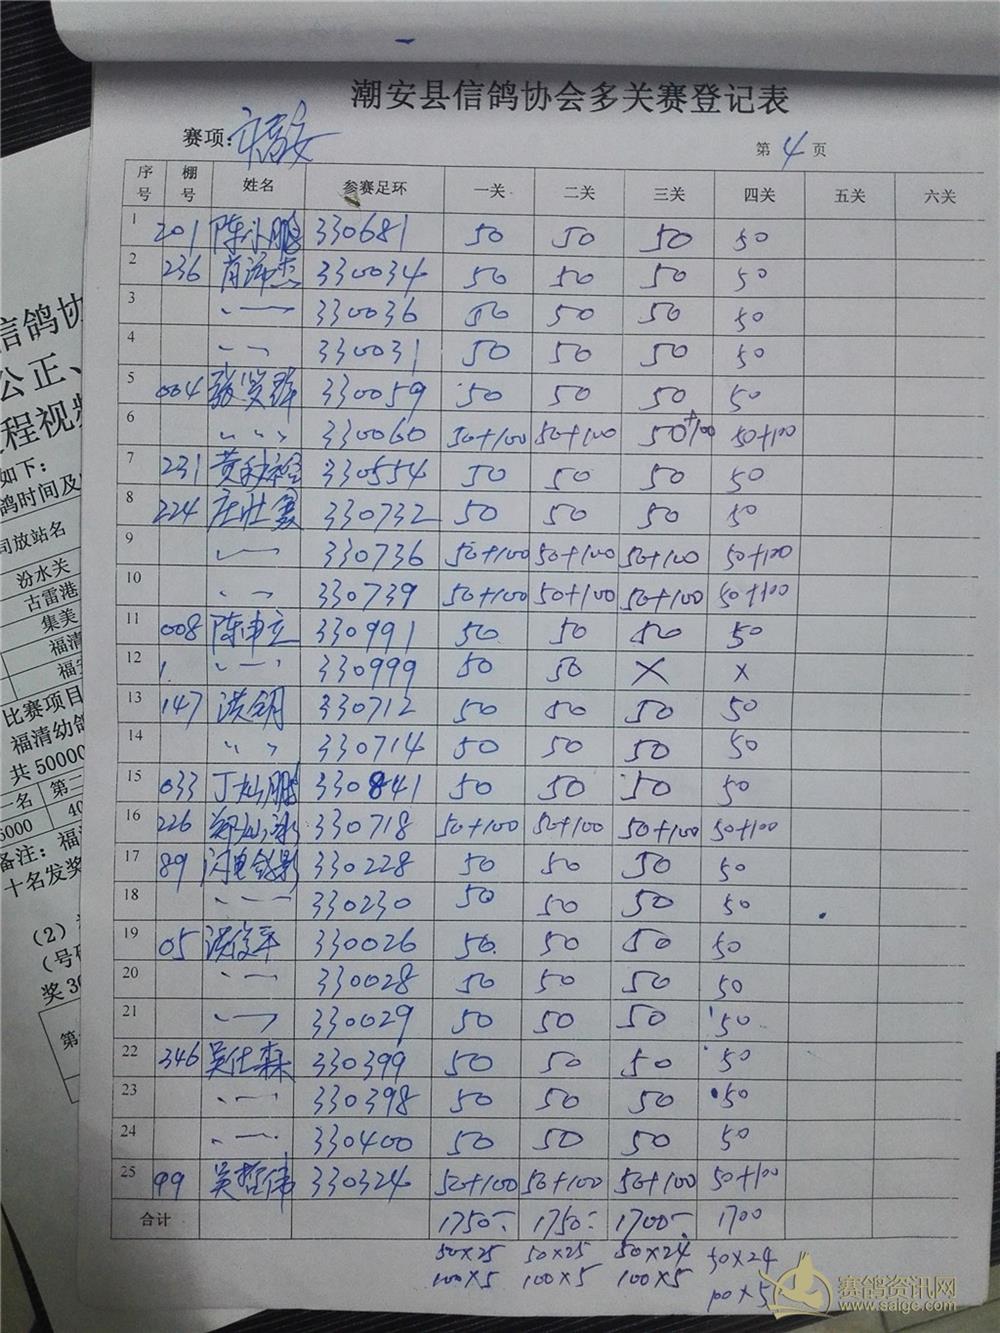 潮安县信鸽协会多关赛登记表
赛项: 福安
第 4 页
序号 棚号 姓名 参赛足环 一关 二关 三关 四关 五关 六关
1 201 陈小鹏 330681 50 50 50 50
2 236 肖沛杰 330034 50 50 50 50
3 330036 50 50 50 50
4 330031 50 50 50 50
5 004 330059 50 50 50 50
6 330060 50+100 50+100 50+100 50+100
7 231 330554 50 50 50 50
8 224 庄壮 330732 50 50 50 50
9 330736 50+100 50+100 50+100 50+100
10 330739 50+100 50+100 50+100 50+100
11 008 陈申立 330991 50 50 50 50
12 330999 50 50 X X
13 147 330712 50 50 50 50
14 330714 50 50 50 50
15 033 丁灿鹏 330841 50 50 50 50
16 226 330718 50+100 50+100 50+100 50+100
17 89 闪电 330228 50 50 50 50
18 330230 50 50 50 50
19 05 洪俊平 330026 50 50 50 50
20 330028 50 50 50 50
21 330029 50 50 50 50
22 346 吴仕森 330399 50 50 50 50
23 330398 50 50 50 50
24 330400 50 50 50 50
25 99 吴哲伟 330324 50+100 50+100 50+100 50+100
合计 1750- 1750- 1700- 1700
50×25 50×25 50×24 50×24
100×5 100×5 100×5 100×5
信鸽协
公正、
程视频
如下:
鸽时间及
司放站名
汾水关
古雷港
集美
福清
福安
比赛项目
福清幼鸽
共50000
一名 第二
5000 40
备注: 福
十名发奖
(2)
(号码
奖30
第
赛鸽资讯网
www.saige.com